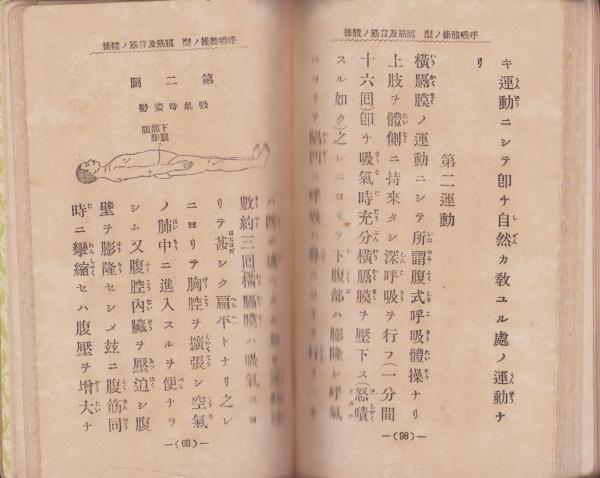 呼吸體操ノ型 腹筋及背筋ノ體操
キ運動ニシテ卽チ自然カ敎ユル處ノ運動ナ
リ
第二運動
橫膈膜ノ運動ニシテ所謂腹式呼吸體操ナリ
上肢ヲ體側ニ持來タシ深呼吸ヲ行フ(一分間
十六囘)卽チ吸氣時充分橫膈膜ヲ壓下ス(怒責
スル如ク)之レニヨリテ下腹部ハ膨隆シ呼氣
―(98)―
呼吸體操ノ型 腹筋及背筋ノ體操
第二圖
吸氣時姿勢
下腹部膨隆
數約三囘橫膈膜ハ吸氣ニヨ
リテ甚シク扁平トナリ之レ
ニヨリテ胸腔ヲ擴張シ空氣
ノ肺中ニ進入スルヲ便ナラ
シム又腹腔內臟ヲ壓迫シ腹
壁ヲ膨隆セシメ玆ニ腹筋同
時ニ攣縮セハ腹壓ヲ增大ナ
―(99)―